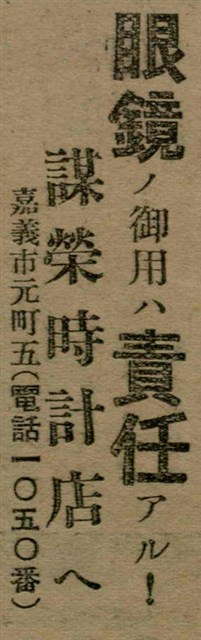 眼鏡ノ御用ハ責任アル！
謀榮時計店へ
嘉義市元町五（電話一〇五〇番）